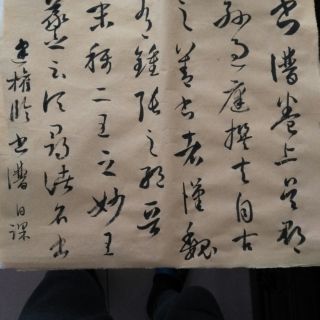 書譜卷上吳郡
孫過庭撰夫自古
之善書者漢魏
有鍾張之絕晉
末稱二王之妙王
羲之云頃尋諸名書
建權臨書譜日課